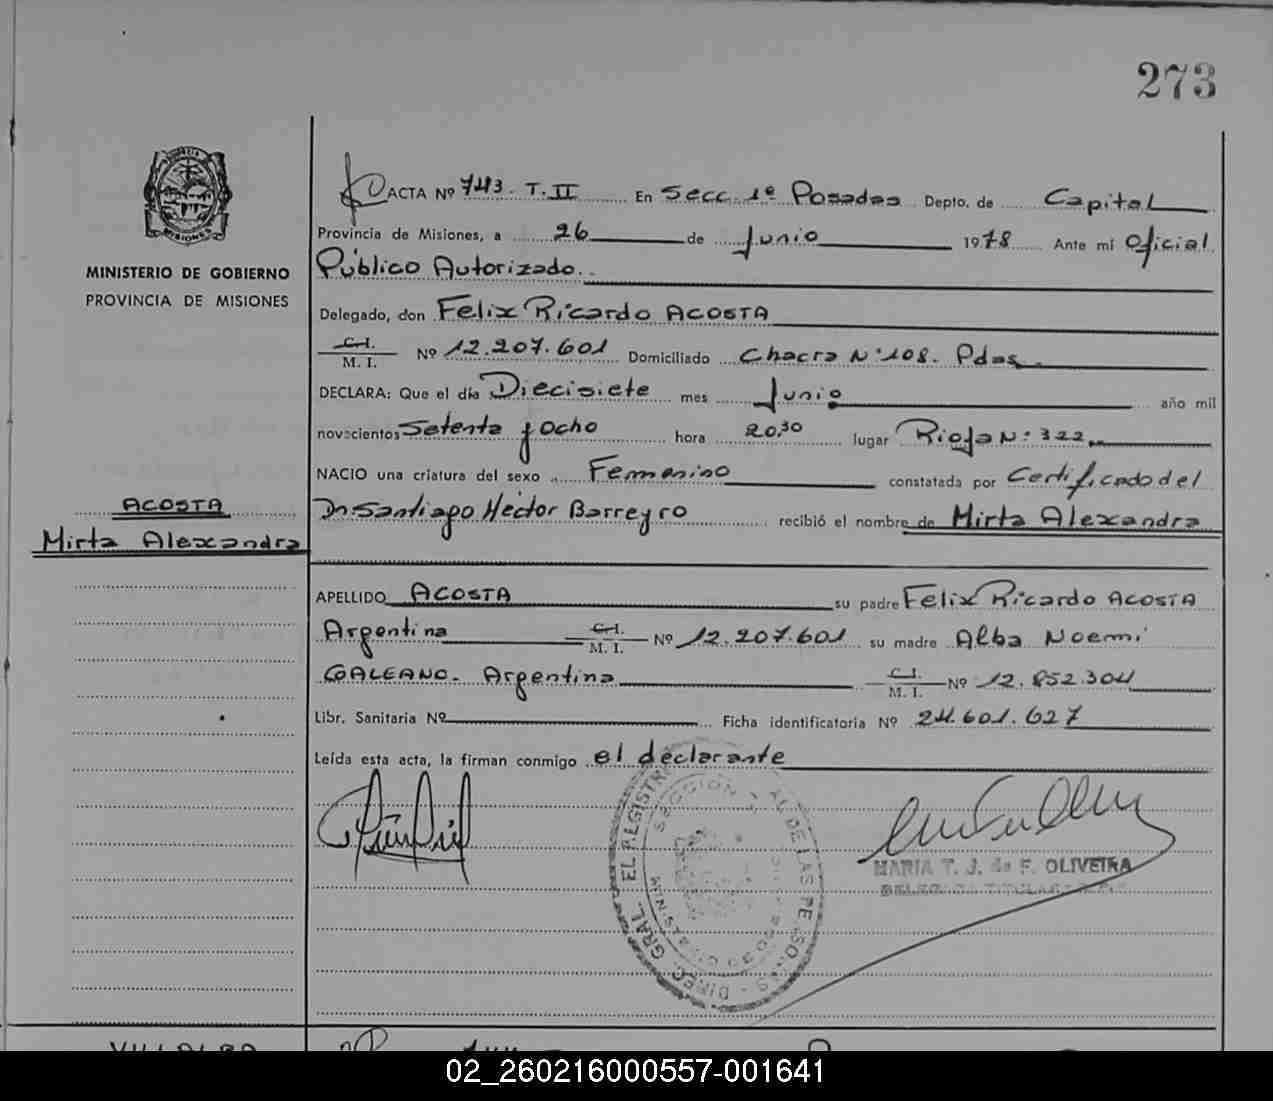 273
MISIONES
MINISTERIO DE GOBIERNO
PROVINCIA DE MISIONES
ACOSTA
Mirta Alexandra
ACTA Nº 743. T. II En Secc. 1º Posadas Depto. de Capital
Provincia de Misiones, a 26 de Junio 1978 Ante mi Oficial
Público Autorizado.
Delegado, don Felix Ricardo ACOSTA
C.I. / M. I. Nº 12.207.601 Domiciliado Chacra Nº 108. Pdas.
DECLARA: Que el día Diecisiete mes Junio año mil
novecientos Setenta y Ocho hora 20,30 lugar Rioja Nº 322
NACIO una criatura del sexo Femenino constatada por Certificado del
Dr Santiago Héctor Barreyro recibió el nombre de Mirta Alexandra
APELLIDO ACOSTA su padre Felix Ricardo ACOSTA
Argentina C.I. / M. I. Nº 12.207.601 su madre Alba Noemi
GALEANO. Argentina C.I. / M. I. Nº 12.852.304
Libr. Sanitaria Nº Ficha identificatoria Nº 24.601.627
Leída esta acta, la firman conmigo el declarante
MARIA T. J. de F. OLIVEIRA
DELEGADA TITULAR
DIREC. GRAL. EL REGISTRO DE LAS PERSONAS
SECCION
VILLALBA
02_260216000557-001641